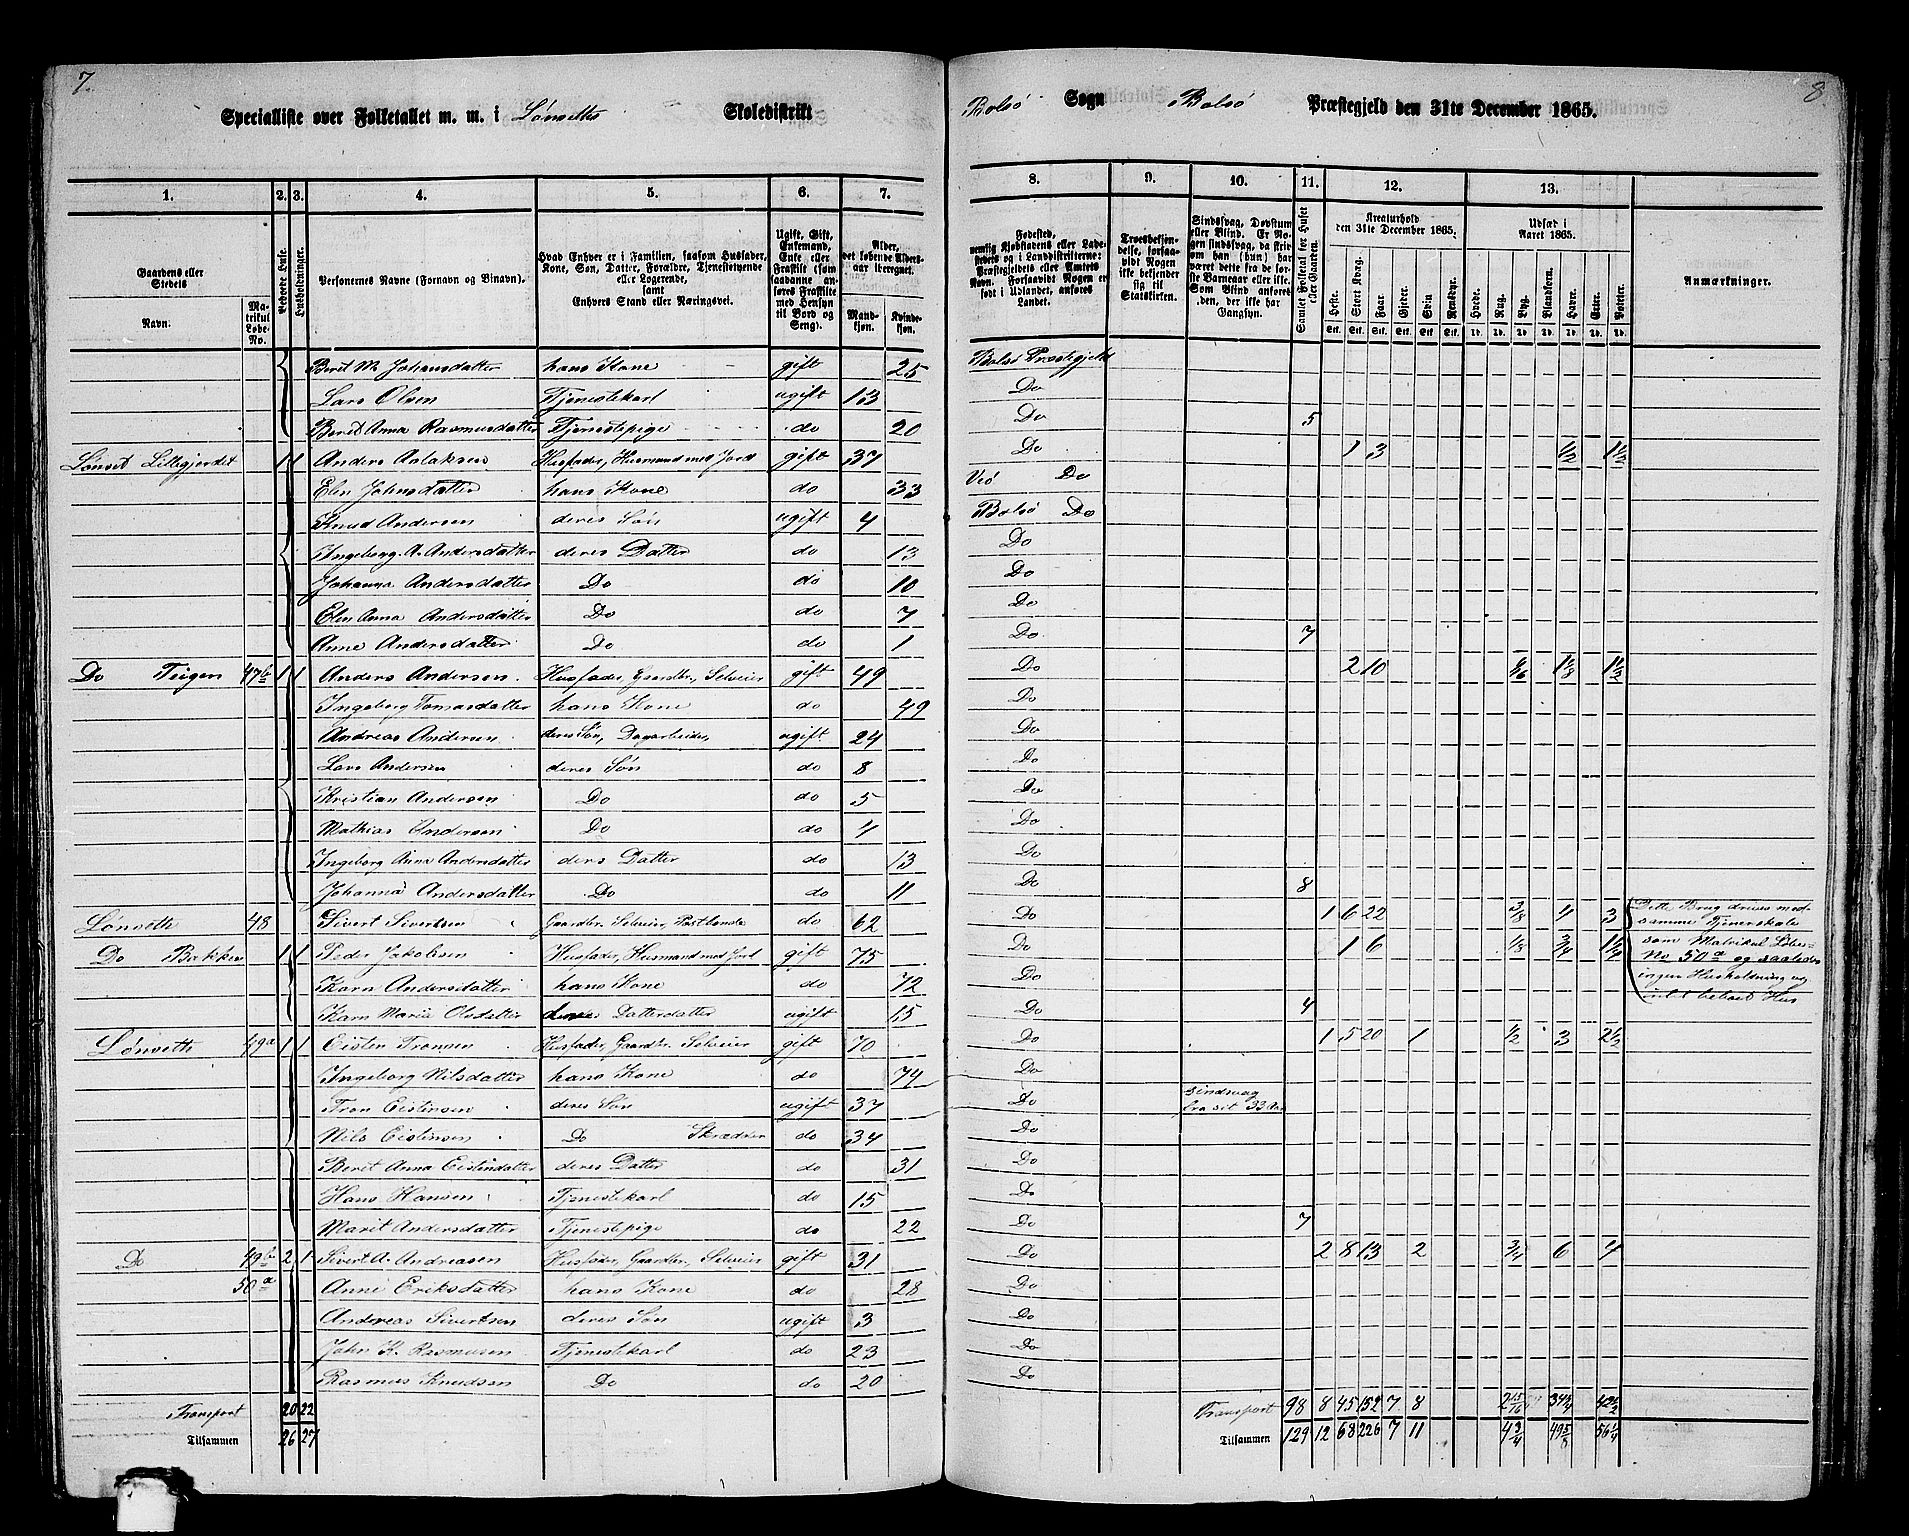 7.
8.
Specialliste over Folketallet m. m. i Lønseths Skoledistrikt Bolsø Sogn Bolsø Præstegjeld den 31te December 1865.
1. 2. 3. 4. 5. 6. 7. 8. 9. 10. 11. 12. 13.
Gaardens eller Stedets
Navn. Matrikul Løbe-No.
Beboede Huse.
Husholdninger.
Personernes Navne (Fornavn og Binavn).
Hvad Enhver er i Familien, saasom Husfader, Kone, Søn, Datter, Forældre, Tjenestetyende eller Logerende, samt Enhvers Stand eller Næringsvei.
Ugift, Gift, Enkemand, Enke eller Fraskilt (som saadanne anføres Fraskilte med Hensyn til Bord og Seng).
Alder, det løbende Aldersaar iberegnet.
Mandkjøn. Kvindekjøn.
Fødested, nemlig Kjøbstadens eller Ladestedets og i Landdistrikterne: Præstegjeldets eller Amtets Navn. Forsaavidt Nogen er født i Udlandet, anføres Landet.
Troesbekjendelse, forsaavidt Nogen ikke bekjender sig til Statskirken.
Sindssvag, Døvstum eller Blind. Er Nogen sindssvag, da skrives om han (hun) har været dette fra de første Barneaar eller ikke. Som Blind anføres den, der ikke har Gangsyn.
Samlet Folketal for Huset eller Gaarden.
Kreaturhold den 31te December 1865.
Heste. Stort Kvæg. Faar. Gjeder. Svin Rensdyr.
Udsæd i Aaret 1865.
Hvede. Rug. Byg. Blandkorn. Havre. Erter. Poteter.
Anmærkninger.
Berit M. Johansdatter hans Kone gift 25 Bolsø Præstegjeld
Lars Olsen Tjenestekarl ugift 13 Do
Berit Anna Rasmusdatter Tjenestepige do 20 Do 5
Lønset Lillegjerdet 1 1 Anders Aslaksen Husfader, Husmand med Jord gift 37 Do 1 3 1/2 1 1/2
Elen Johnsdatter hans Kone do 33 Veø Do
Knud Andersen deres Søn ugift 4 Bolsø Do
Ingeborg A. Andersdatter deres Datter do 13 Do
Johanna Andersdatter Do do 10 Do
Elen Anna Andersdatter Do do 7 Do
Anne Andersdatter Do do 1 Do 7
Do Teigen 47b 1 1 Anders Andersen Husfader, Gaardbr. Selveier gift 49 Do 2 10 1 1/8 1 1/2
Ingeborg Tomasdatter hans Kone do 49 Do
Andreas Andersen deres Søn, Dagarbeider, ugift 24 Do
Lars Andersen deres Søn do 8 Do
Kristian Andersen Do do 5 Do
Mathias Andersen Do do 4 Do
Ingeborg Anna Andersdatter deres Datter do 13 Do
Johanna Andersdatter Do do 11 Do 8
Lønseth 48 Sivert Sivertsen Gaardbr. Selveier, do 62 Do 1 6 22 3/8 4 3
Dette Brug drives med
samme
som Matrikul Løbe-
No 50a og saaledes
ingen Husholdning og
intet beboet Hus
Do Bakken 1 1 Peder Jakobsen Husfader, Husmand med Jord gift 75 Do 1 6 1/8 3/4 1 1/4
Karn Andersdatter hans Kone do 72 Do
Karn Maria Olsdatter deres Datterdatter ugift 15 Do 4
Lønseth 49a 1 1 Eisten Tronsen Husfader, Gaardbr. Selveier gift 70 Do 1 5 20 1 1/2 3 2 1/2
Ingeborg Nilsdatter hans Kone do 74 Do
Tron Eistensen deres Søn ugift 37 Do Sindsvag fra sit 33 Aar
Nils Eistensen Do Skrædder do 34 Do
Berit Anna Eistendatter deres Datter do 31 Do
Hans Hansen Tjenestekarl do 15 Do
Marit Andersdatter Tjenestepige do 22 Do 7
Do 49b 2 1 Sivert A. Andreasen Husfader, Gaardbr. Selveier gift 31 Do 2 8 13 2 3/4 6 4
50a Anne Eriksdatter hans Kone do 28 Do
Andreas Sivertsen deres Søn ugift 3 Do
John K. Rasmusen Tjenestekarl do 23 Do
Rasmus Knudsen Do do 20 Do
Transport 20 22 Transport 98 8 45 152 7 8 2 15/16 34 1/4 42 1/2
Tilsammen 26 27 Tilsammen 129 12 68 226 7 11 4 3/4 49 5/8 56 1/4